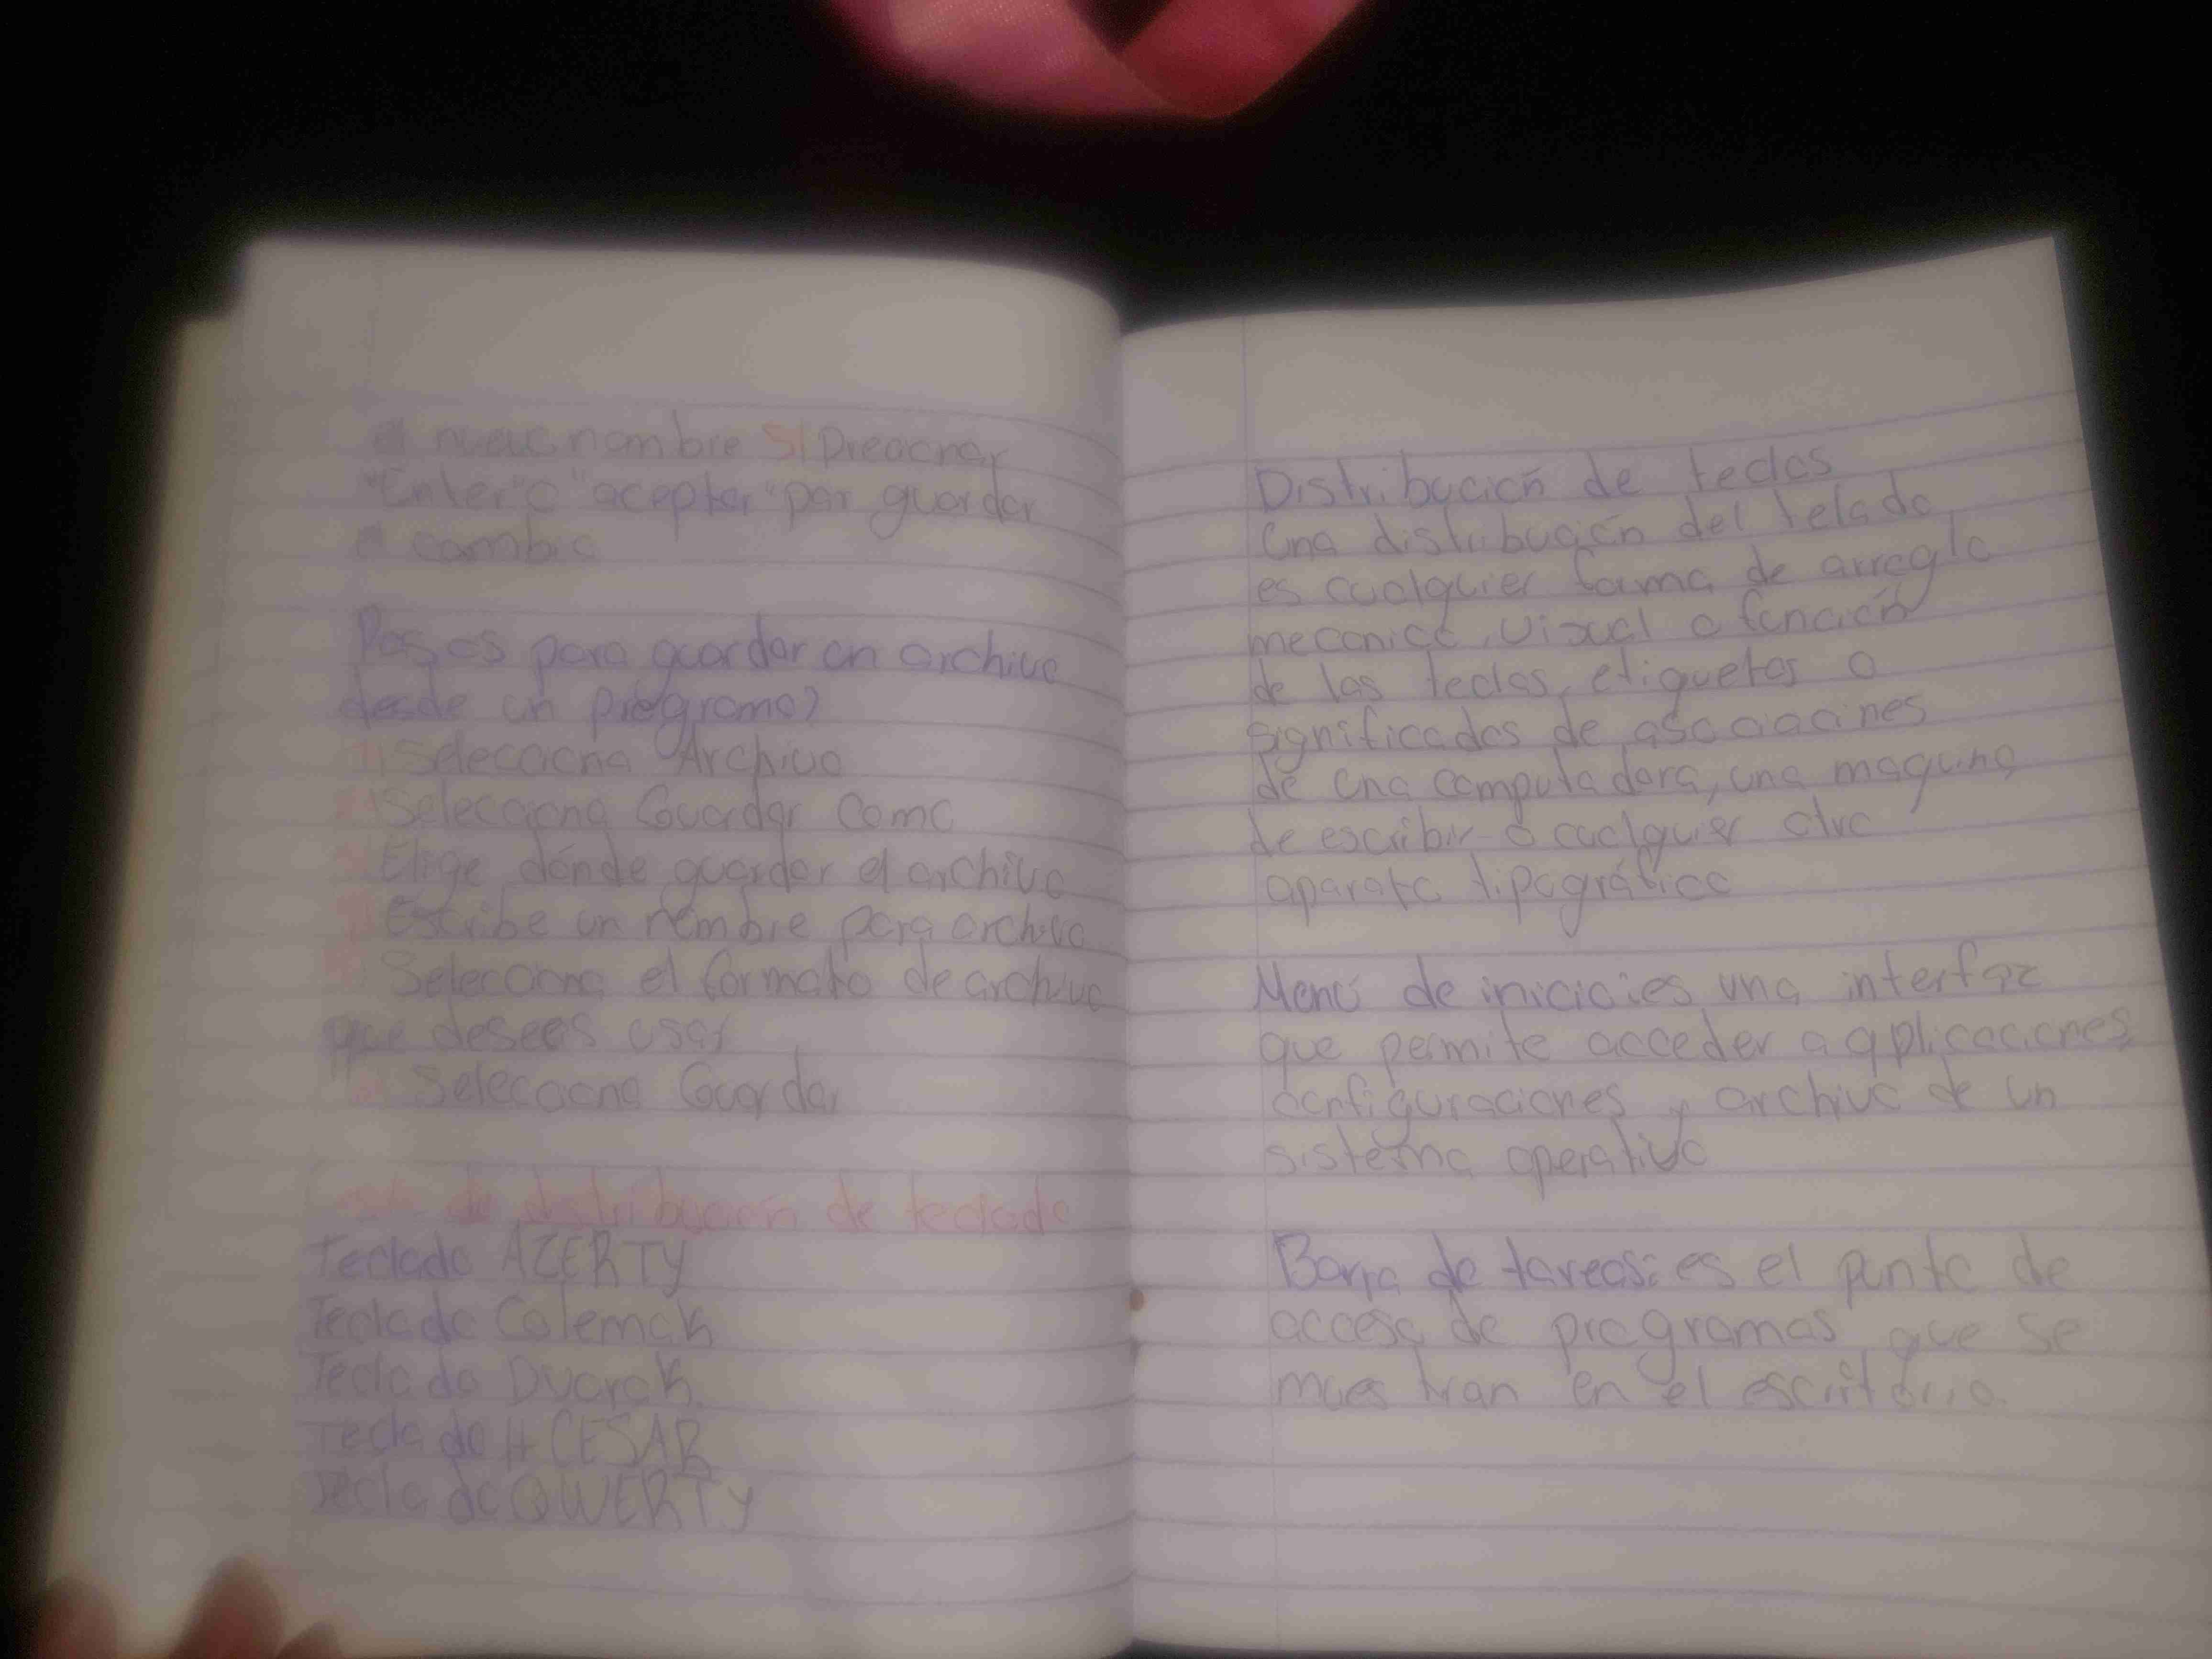 nuevo nombre 5) Preciona
"Enter" o "aceptar" por guardar
cambio
Pasos para guardar un archivo
desde un programa?
Selecciona Archivo
Selecciona Guardar Como
Elige dónde guardar el archivo
Escribe un nombre para archivo
Selecciona el formato de archivo
que desees usar
Selecciona Guardar
de distribución de teclado
Teclado AZERTY
Teclado Colemak
Teclado Dvorak
Teclado HCESAR
Teclado QWERTY
Distribución de teclas
Una distribución del telado
es cualquier forma de arreglo
mecanica, visual o función
de las teclas, etiquetas o
significados de asociacines
de una computadora, una maquina
de escribir o cualquier otro
aparato tipográfico
Menú de inicio: es una interfaz
que permite acceder a aplicaciones,
configuraciones y archivo de un
sistema operativo
Barra de tareas: es el punto de
acceso de programas que se
muestran en el escritorio.